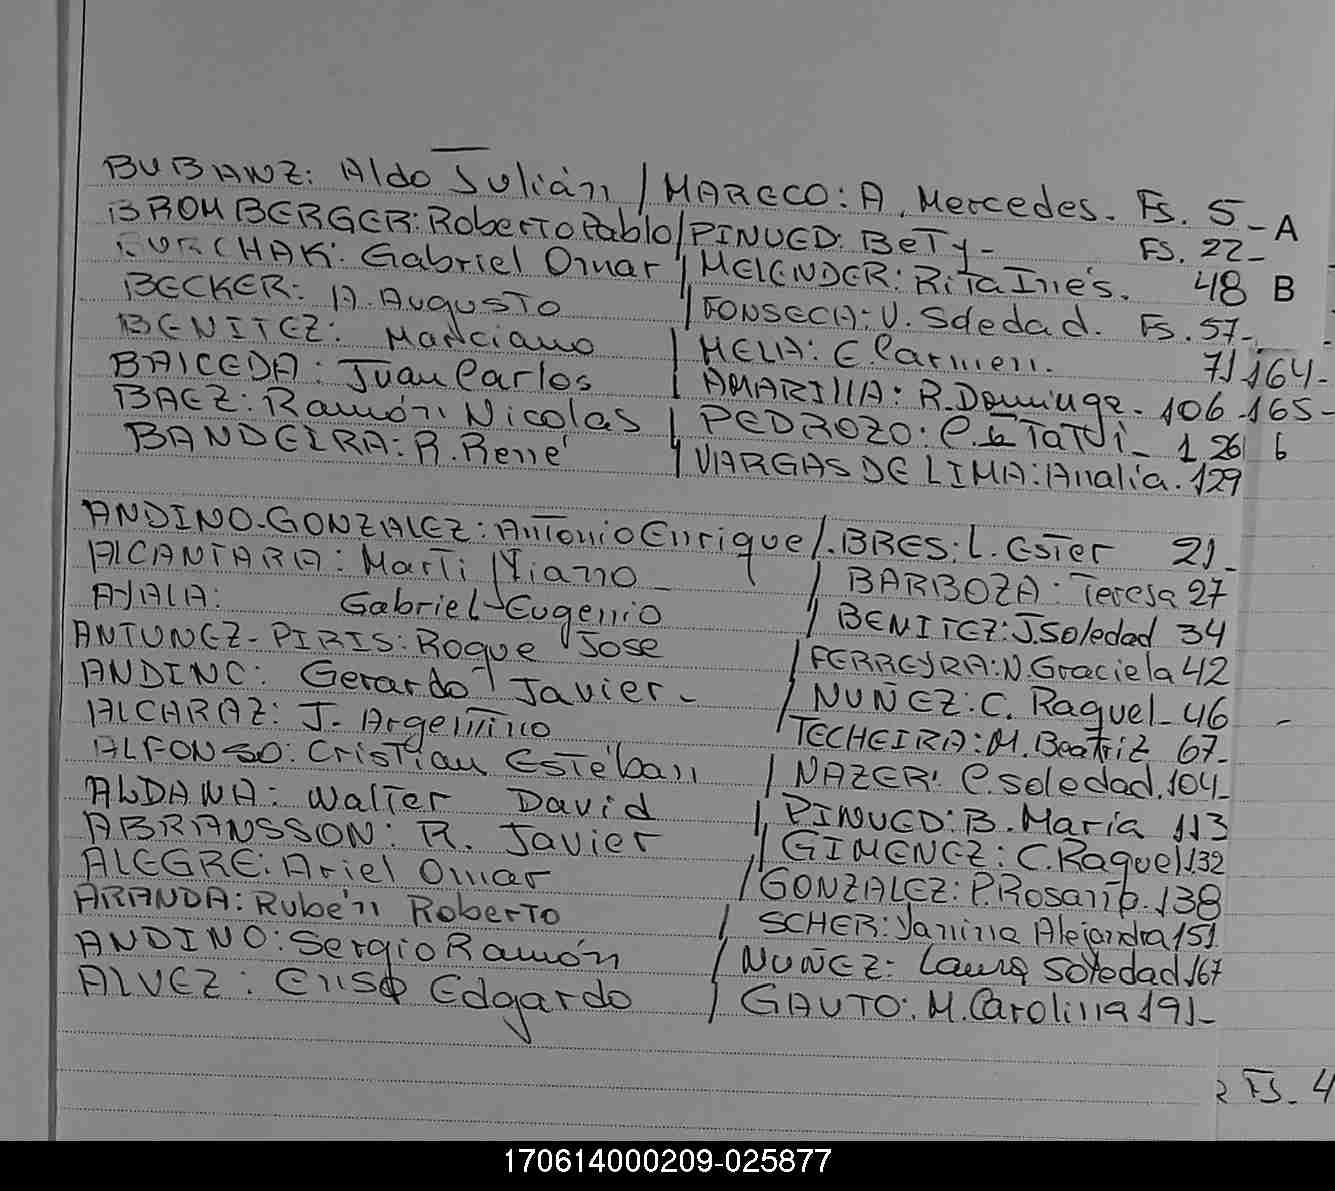 BUBANZ: Aldo Julián / MARECO: A. Mercedes. Fs. 5_ A
BROMBERGER: Roberto Pablo / PINUED: BeTy_ FS. 22_
BURCHAK: Gabriel Omar / MELENDER: Rita Inés. 48 B
BECKER: A. AugusTo / FONSECA: V. Soledad. Fs. 57_
BENITEZ: Marciano / MELIA: E Carmen. 71 164_
BAICEDA: Juan Carlos / AMARIllA: R. Dominga. 106 165_
BAEZ: Ramón Nicolas / PEDROZO: C. TaTdi_ 126 6
BANDEIRA: R. René / VARGAS DE LIMA: Analía. 129
ANDINO-GONZALEZ: AnTonio Enrique / BRES: L. EsTer 21_
AlCANTARA: MarTi / BARBOZA: Teresa 27
AYALA: Gabriel-Eugenio / BENITEZ: J. Soledad 34
ANTUNEZ-PIRIS: Roque Jose / FERREYRA: N. Graciela 42
ANDINO: Gerardo Javier_ / NUÑEZ: C. Raquel_ 46 _
AlCARAZ: J. Argentino TECHEIRA: M. Beatriz 67_
ALFONSO: CrisTian EsTéban / NAZER: C. soledad. 104_
ALDANA: WalTer David / PINUED: B. María 113
ABRANSSON: R. Javier / GIMENEZ: C. Raquel 132
ALEGRE: Ariel Omar / GONZALEZ: P. Rosario. 138
ARANDA: Rubén RoberTo / SCHER: Yanina Alejandra 151
ANDINO: Sergio Ramón / NUÑEZ: Laura Soledad 167
ALVEZ: Enso Edgardo / GAUTO: M. Carolina 191_
FS_ 4
170614000209-025877